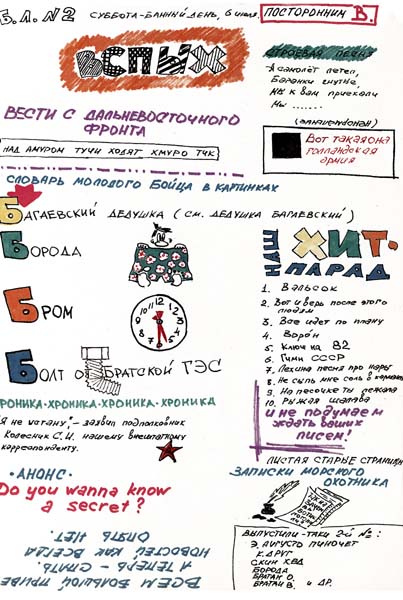 Б.Л. №2
СУББОТА-БАННЫЙ ДЕНЬ, 6 июля.
ПОСТОРОННИМ В.
ВСПЫХ
СТРОЕВАЯ ПЕСНЯ
А самолёт летел,
Баранки гнутые,
Мы к вам приехали
Мы ......
ВЕСТИ С ДАЛЬНЕВОСТОЧНОГО
ФРОНТА
НАД АМУРОМ ТУЧИ ХОДЯТ ХМУРО ТЧК
Вот такая она
голландская
армия
СЛОВАРЬ МОЛОДОГО БОЙЦА В КАРТИНКАХ
БАГАЕВСКИЙ ДЕДУШКА (СМ. ДЕДУШКА БАГАЕВСКИЙ)
БОРОДА
БРОМ
БОЛТ О БРАТСКОЙ ГЭС
НАШ ХИТ-
ПАРАД
1. Вальсок
2. Вот и верь после этого
людям
3. Все идет по плану
4. Ворон
5. Ключ на 82
6. Гимн СССР
7. Лехина песня про нары
8. Не сыпь мне соль в карман
9. На песочке ты лежала
10. Рыжая шалава
и не подумаем
ждать ваших
писем!
РОНИКА·ХРОНИКА·ХРОНИКА·ХРОНИКА
Я не читану"- заявил подполковник
Колесник С.И. нашему внештатному
корреспонденту.
·АНОНС·
Do you wanna know
a secret?
ЛИСТАЯ СТАРЫЕ СТРАНИЦЫ
ЗАПИСКИ МОРСКОГО
ОХОТНИКА
ВСЕМ БОЛЬШОЙ ПРИВЕ
А ТЕПЕРЬ - СПАТЬ.
НОВОСТЕЙ КАК ВСЕГДА
ОПЯТЬ НЕТ.
ВЫПУСТИЛИ-ТАКИ 2-й №:
Э. ЛИГУСТО ПИНОЧЕТ
К. ДРУГ
СКИН ХЕД
БОРОДА
БРАТАН О.
БРАТАН В. И ДР.